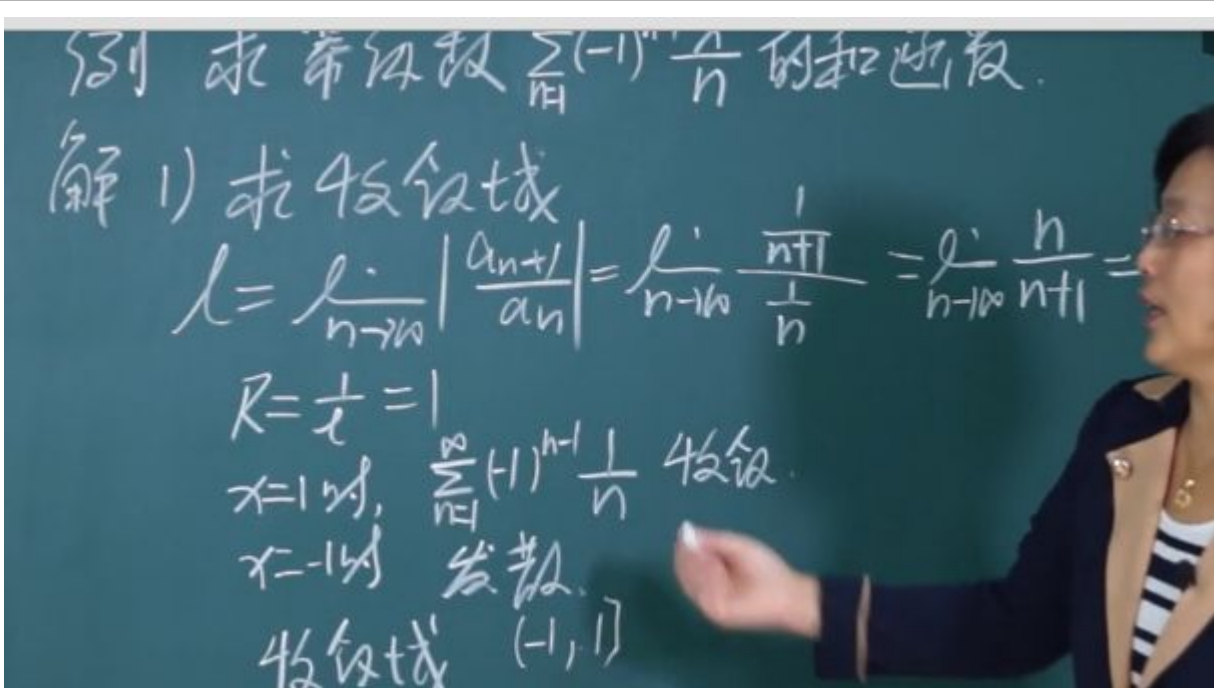 例 求幂级数 ∑_{n=1} (-1)^{n-1} x^n/n 的和函数.
解 1) 求收敛域
l = lim_{n→∞} |a_{n+1}/a_n| = lim_{n→∞} (1/(n+1))/(1/n) = lim_{n→∞} n/(n+1) =
R = 1/l = 1
x=1时, ∑_{n=1}^{∞} (-1)^{n-1} 1/n 收敛.
x=-1时 发散.
收敛域 (-1, 1]